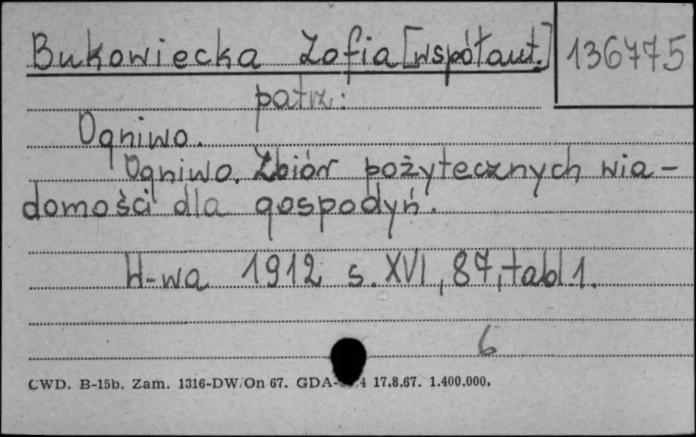 Bukowiecka Zofia [współaut.] 136775
patrz:
Ogniwo.
Ogniwo. Zbiór pożytecznych wia-
domości dla gospodyń.
W-wa 1912 s. XVI, 87, tabl 1.
6
CWD. B-15b. Zam. 1316-DW/On 67. GDA- 4 17.8.67. 1.400.000.